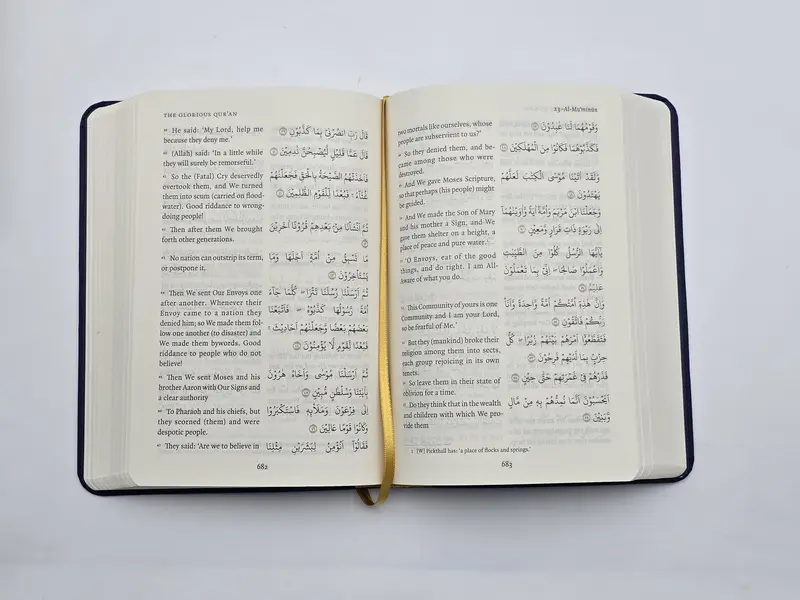 THE GLORIOUS QUR'AN
He said: 'My Lord, help me
because they deny me.'
(Allah) said: 'In a little while
they will surely be remorseful.'
So the (Fatal) Cry deservedly
overtook them, and We turned
them into scum (carried on flood-
water). Good riddance to wrong-
doing people!
Then after them We brought
forth other generations.
No nation can outstrip its term,
or postpone it.
Then We sent Our Envoys one
after another. Whenever their
Envoy came to a nation they
denied him; so We made them fol-
low one another (to disaster) and
We made them bywords. Good
riddance to people who do not
believe!
Then We sent Moses and his
brother Aaron with Our Signs and
a clear authority
To Pharaoh and his chiefs, but
they scorned (them) and were
despotic people.
They said: 'Are we to believe in
قَالَ رَبِّ انْصُرْنِي بِمَا كَذَّبُونِ
قَالَ عَمَّا قَلِيلٍ لَّيُصْبِحُنَّ نَادِمِينَ
فَأَخَذَتْهُمُ الصَّيْحَةُ بِالْحَقِّ فَجَعَلْنَاهُمْ
غُثَاءً ۚ فَبُعْدًا لِّلْقَوْمِ الظَّالِمِينَ
ثُمَّ أَنْشَأْنَا مِنْ بَعْدِهِمْ قُرُونًا آخَرِينَ
مَا تَسْبِقُ مِنْ أُمَّةٍ أَجَلَهَا وَمَا
يَسْتَأْخِرُونَ
ثُمَّ أَرْسَلْنَا رُسُلَنَا تَتْرَا ۖ كُلَّمَا جَاءَ
أُمَّةً رَّسُولُهَا كَذَّبُوهُ ۚ فَأَتْبَعْنَا
بَعْضَهُمْ بَعْضًا وَجَعَلْنَاهُمْ أَحَادِيثَ ۚ
فَبُعْدًا لِّقَوْمٍ لَّا يُؤْمِنُونَ
ثُمَّ أَرْسَلْنَا مُوسَىٰ وَأَخَاهُ هَارُونَ
بِآيَاتِنَا وَسُلْطَانٍ مُّبِينٍ
إِلَىٰ فِرْعَوْنَ وَمَلَئِهِ فَاسْتَكْبَرُوا
وَكَانُوا قَوْمًا عَالِينَ
فَقَالُوا أَنُؤْمِنُ لِبَشَرَيْنِ مِثْلِنَا
682
23-Al-Mu'minūn
two mortals like ourselves, whose
people are subservient to us?'
So they denied them, and be-
came among those who were
destroyed.
And We gave Moses Scripture,
so that perhaps (his people) might
be guided.
And We made the Son of Mary
and his mother a Sign, and We
gave them shelter on a height, a
place of peace and pure water.
'O Envoys, eat of the good
things, and do right. I am All-
Aware of what you do.
This Community of yours is one
Community and I am your Lord,
so be fearful of Me.'
But they (mankind) broke their
religion among them into sects,
each group rejoicing in its own
tenets.
So leave them in their state of
oblivion for a time.
Do they think that in the wealth
and children with which We pro-
vide them
وَقَوْمُهُمَا لَنَا عَابِدُونَ
فَكَذَّبُوهُمَا فَكَانُوا مِنَ الْمُهْلَكِينَ
وَلَقَدْ آتَيْنَا مُوسَى الْكِتَابَ لَعَلَّهُمْ
يَهْتَدُونَ
وَجَعَلْنَا ابْنَ مَرْيَمَ وَأُمَّهُ آيَةً وَآوَيْنَاهُمَا
إِلَىٰ رَبْوَةٍ ذَاتِ قَرَارٍ وَمَعِينٍ
يَا أَيُّهَا الرُّسُلُ كُلُوا مِنَ الطَّيِّبَاتِ
وَاعْمَلُوا صَالِحًا ۖ إِنِّي بِمَا تَعْمَلُونَ
عَلِيمٌ
وَإِنَّ هَٰذِهِ أُمَّتُكُمْ أُمَّةً وَاحِدَةً وَأَنَا
رَبُّكُمْ فَاتَّقُونِ
فَتَقَطَّعُوا أَمْرَهُمْ بَيْنَهُمْ زُبُرًا ۖ كُلُّ
حِزْبٍ بِمَا لَدَيْهِمْ فَرِحُونَ
فَذَرْهُمْ فِي غَمْرَتِهِمْ حَتَّىٰ حِينٍ
أَيَحْسَبُونَ أَنَّمَا نُمِدُّهُمْ بِهِ مِنْ مَّالٍ
وَبَنِينَ
1 [W] Pickthall has: 'a place of flocks and springs.'
683